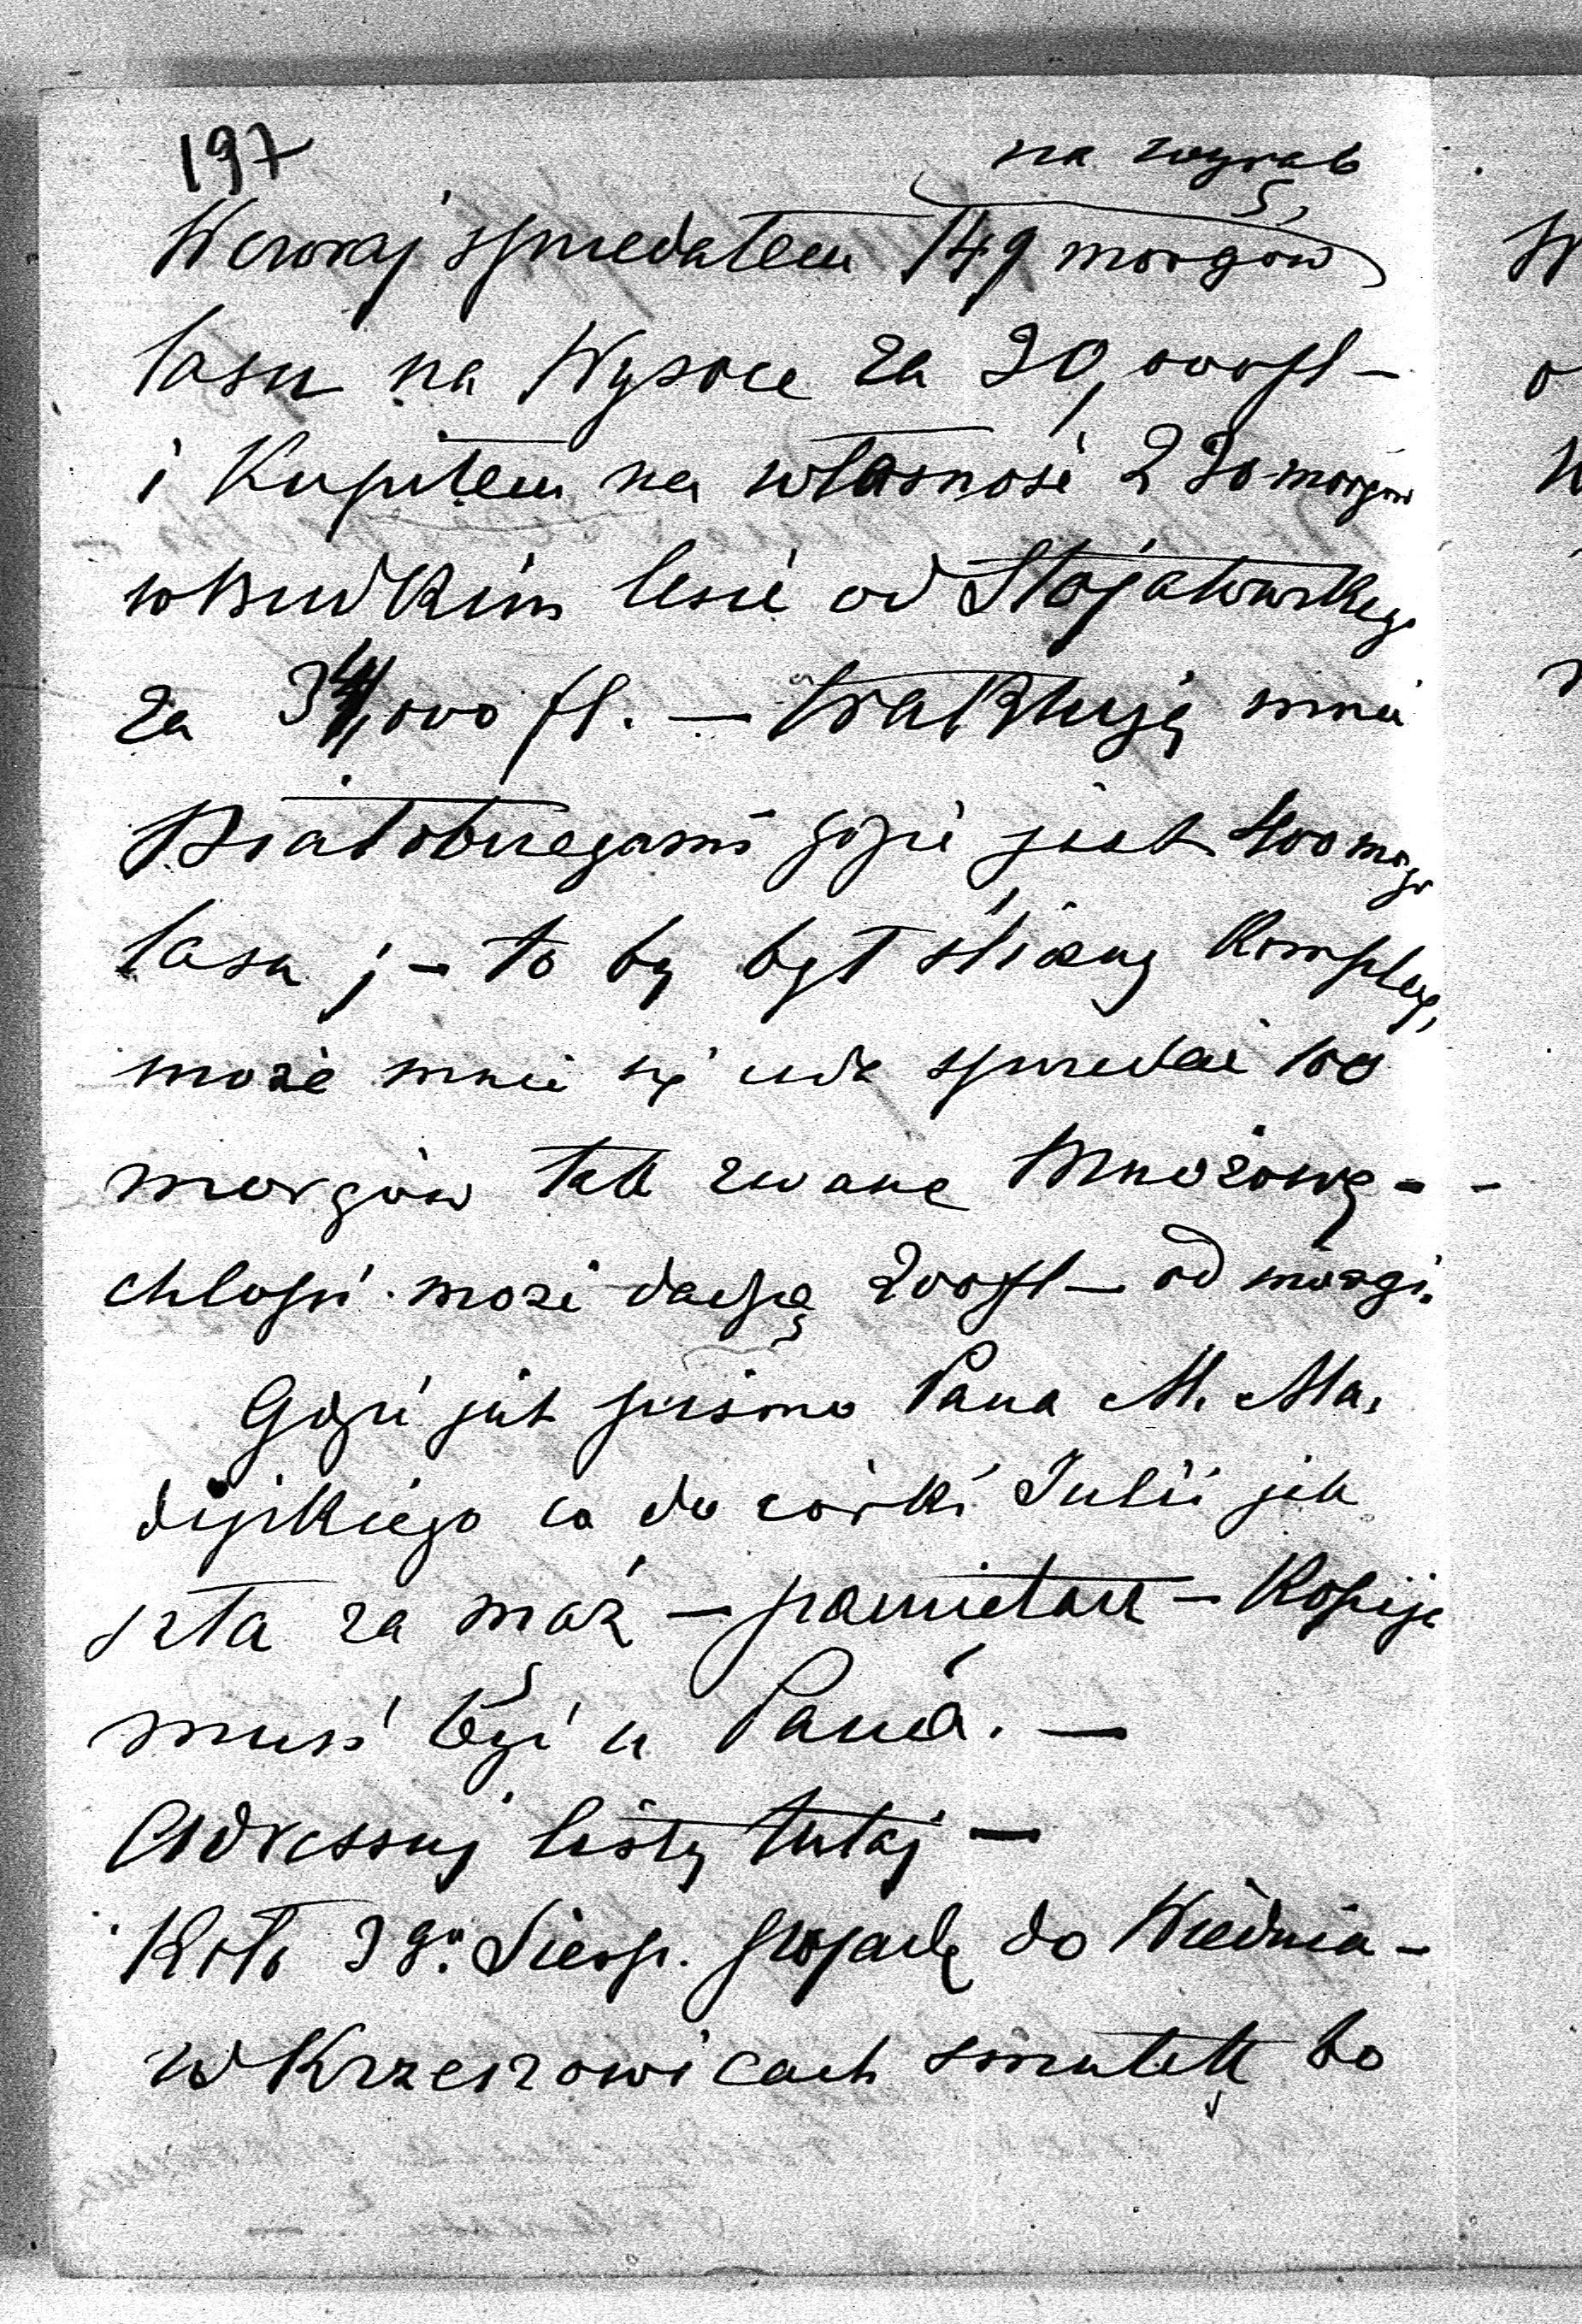 197
na wyrąb
Wczoraj sprzedałem 149 morgów
lasu na Wysoce za 20,000 fl –
i kupiłem na własność 220 morgów
w Budkim lesie od Stojałowskiego
za 34,000 fl. – traktuję mnie
Białobrzegami gdzie jest 400 morgów
lasu ; – to by był śliczny komplex,
może mnie się uda sprzedać 100
morgów tak zwane –
chłopi może dadzą 200 fl – od morgi.
Gdzie jest pismo Pana M. Ma,
dejskiego co do córki Julii jak
szła za mąż – pamiętam – Kopije
musi być u Pana. –
Adressuj listy tutaj –
Koło 3go Sierp. pojadę do Wiednia –
w Krzeszowicach smutek bo